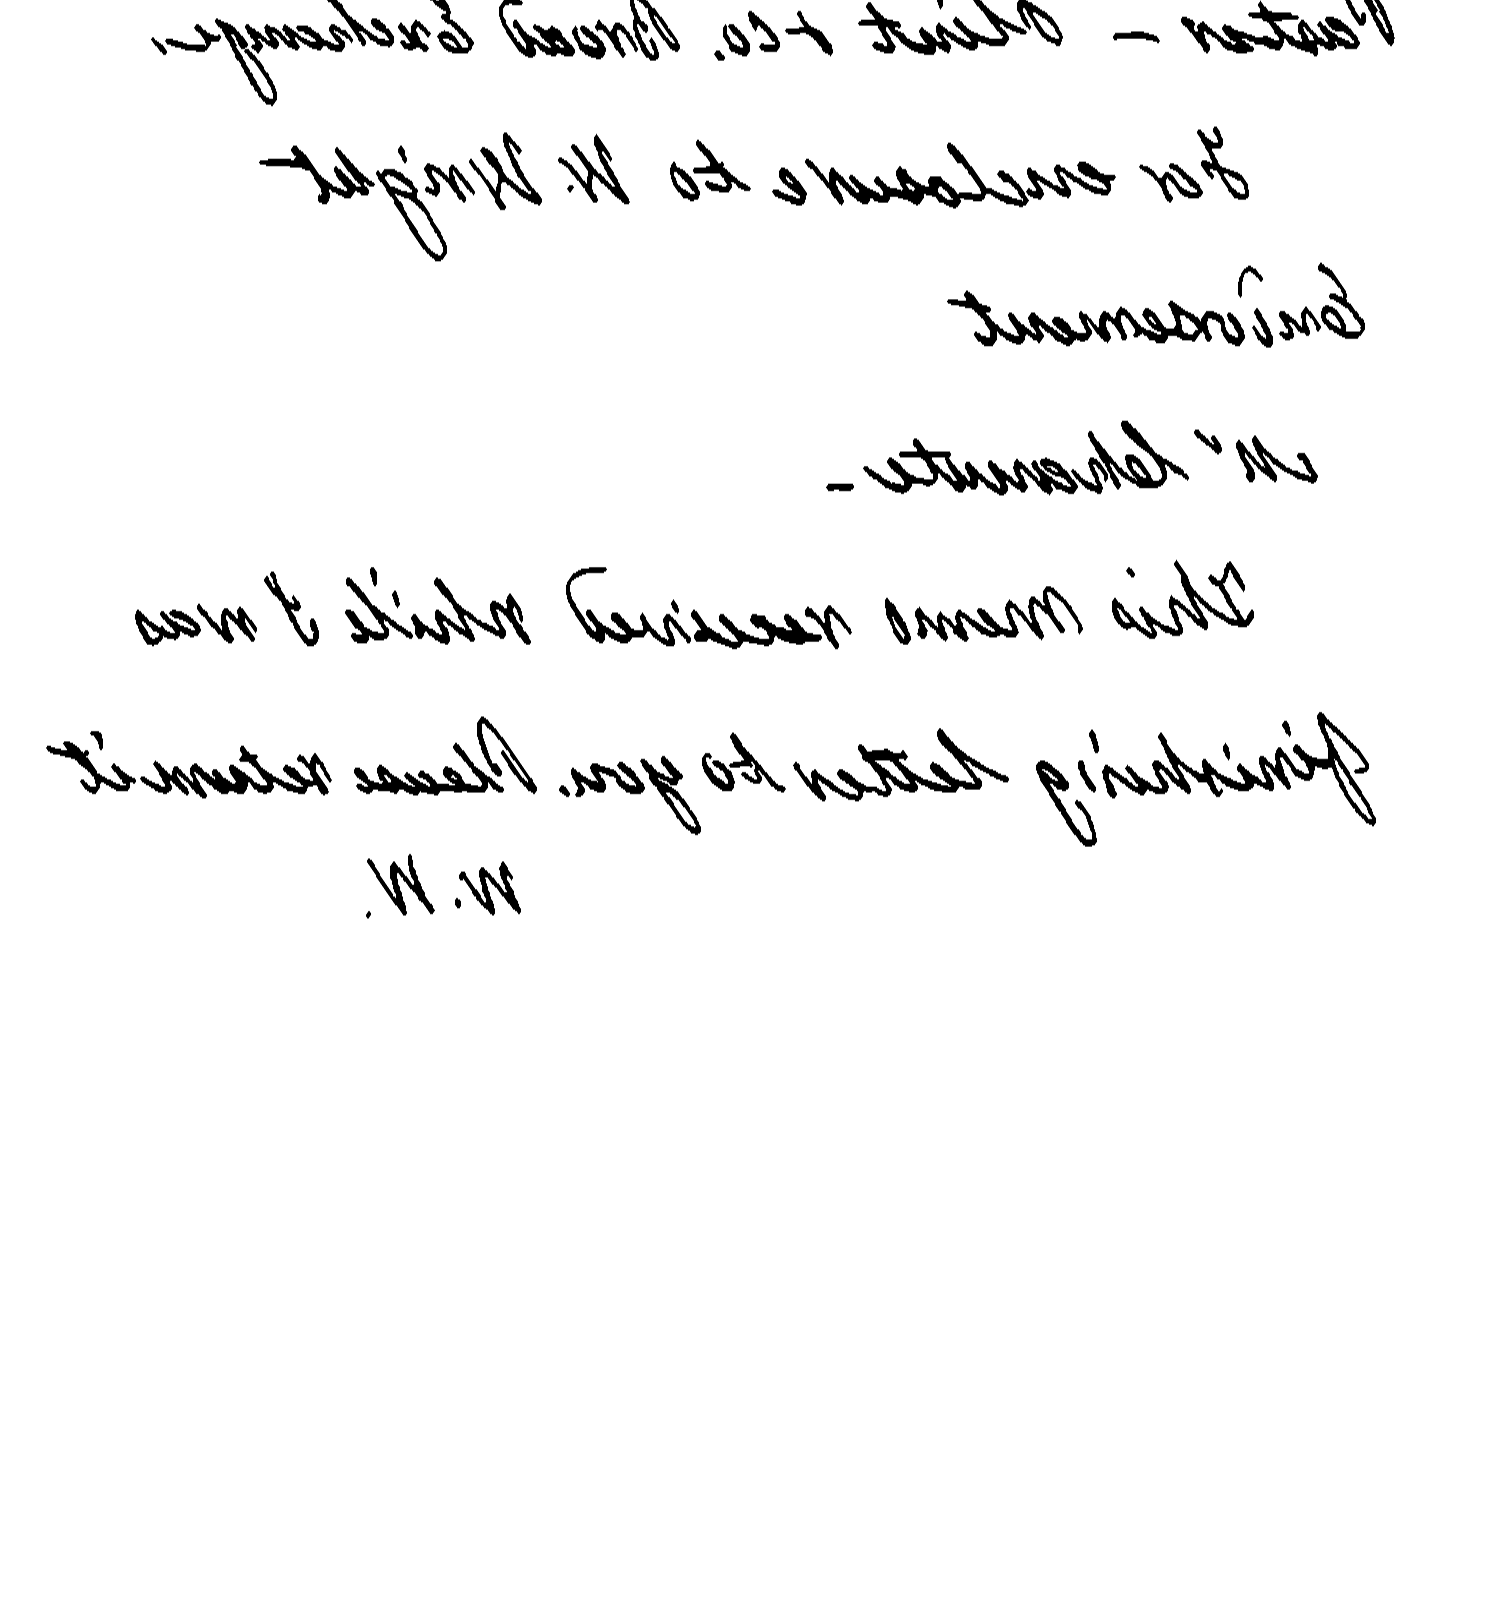 – Flint & Co. Broad Exchange,
For enclosure to W. Wright
Endorsement
Mr Chanute –
This memo received while I was
finishing letter to you. Please return it
W. W.